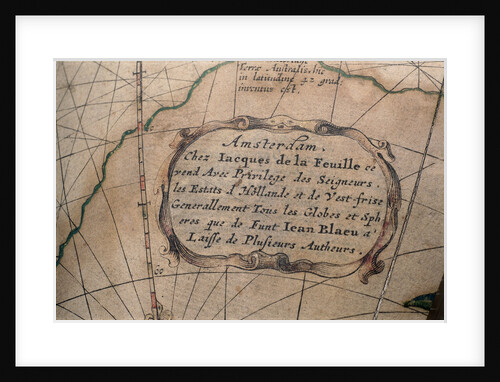 Terræ Australis hic
in latitudine 42 grad.
inventus est.
Amsterdam,
Chez Iacques de la Feuille ce
vend Avec Privilege des Seigneurs.
les Estats d'Hollande et de Vest-frise
Generallement Tous les Globes et Sph
eres que de Funt Iean Blaeu a'
Laisse de Plusieurs Autheurs.
60